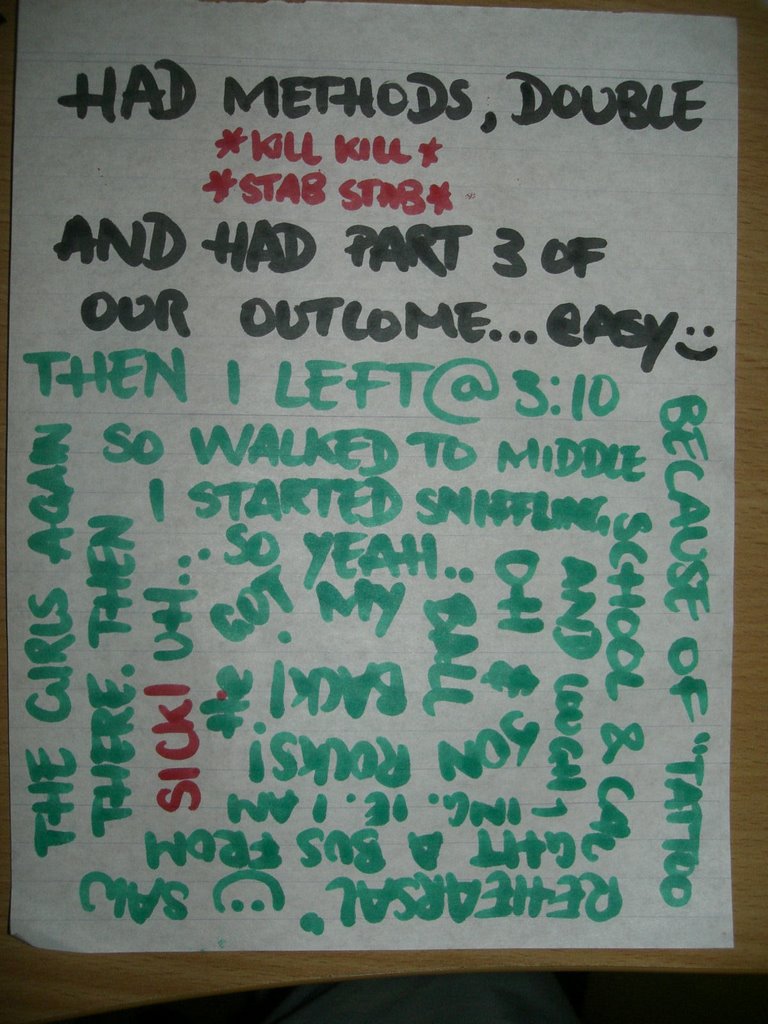 HAD METHODS, DOUBLE
*KILL KILL*
*STAB STAB*
AND HAD PART 3 OF
OUR OUTCOME... easy :)
THEN I LEFT @ 3:10
BECAUSE OF "TATTOO
REHEARSAL" (: SAW
THE GIRLS AGAIN
SO WALKED TO MIDDLE
SCHOOL & CAU
GHT A BUS FROM
THERE. THEN
I STARTED SNIFFLING,
AND COUGH
ING. IE. I AM
SICK! UH...
SO YEAH..
OH & JON
ROCKS!
He
GOT MY
BALL
BACK!